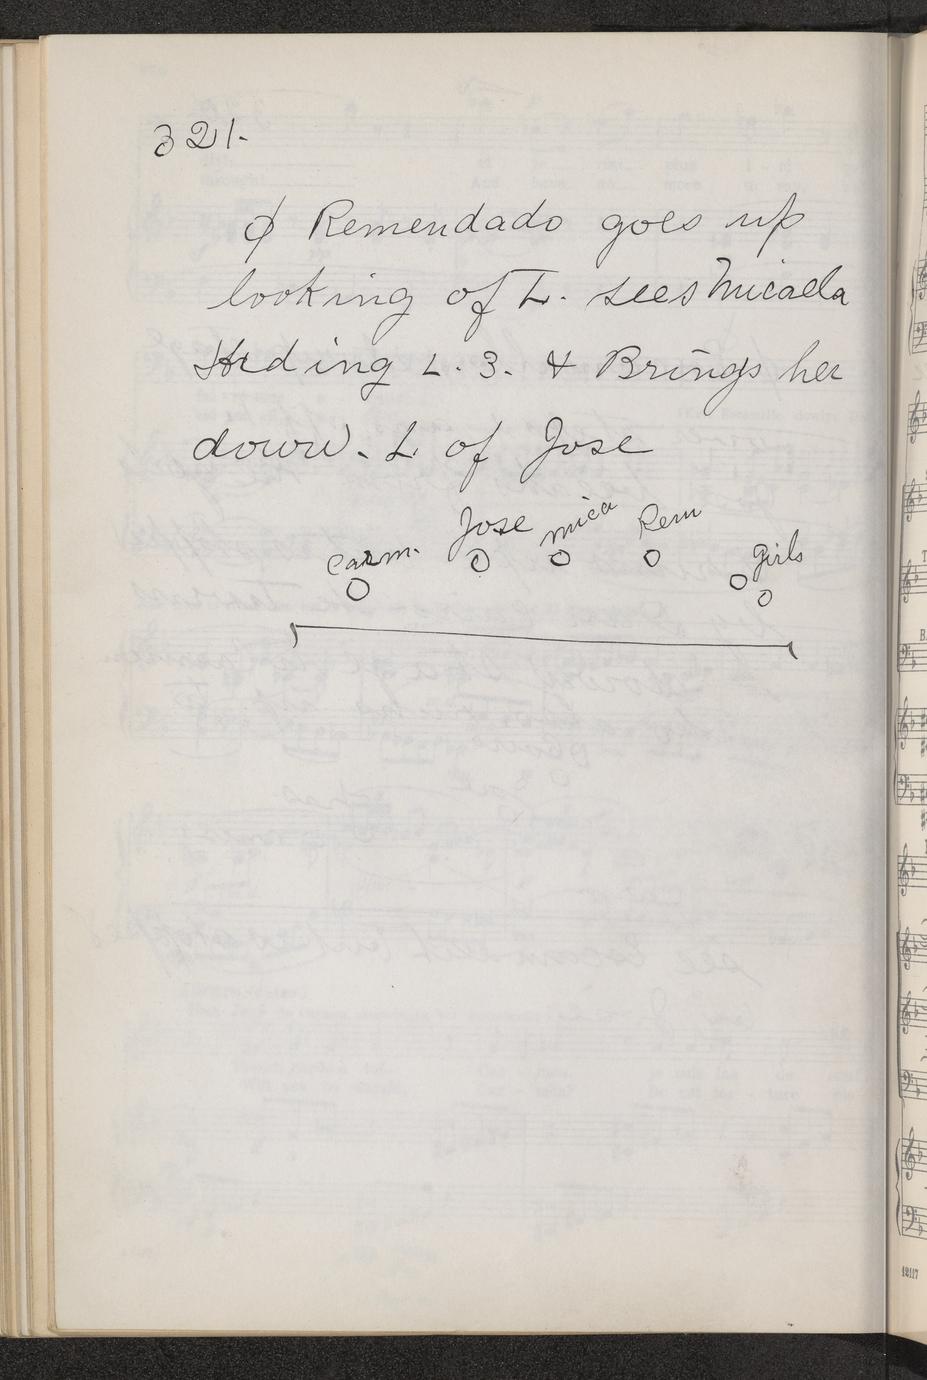 321-
φ Remendado goes up
looking of L. sees Micaela
Hiding L. 3. & Brings her
down. L of Jose
Carm. Jose Mica Rem Girls
12117